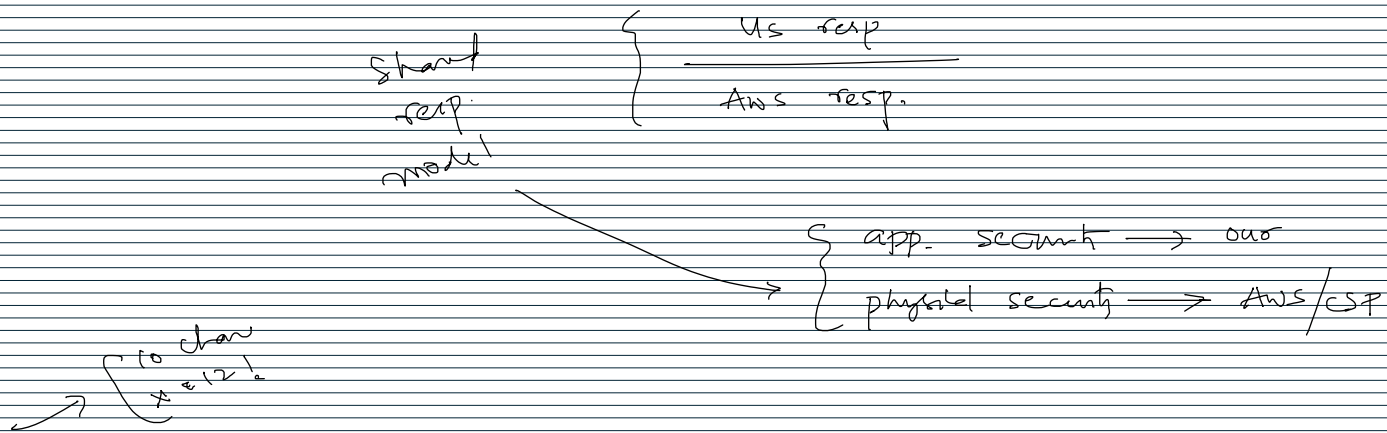 shared
resp.
model
us resp
AWS resp.
app. security → our
physical security → AWS/CSP
10 char